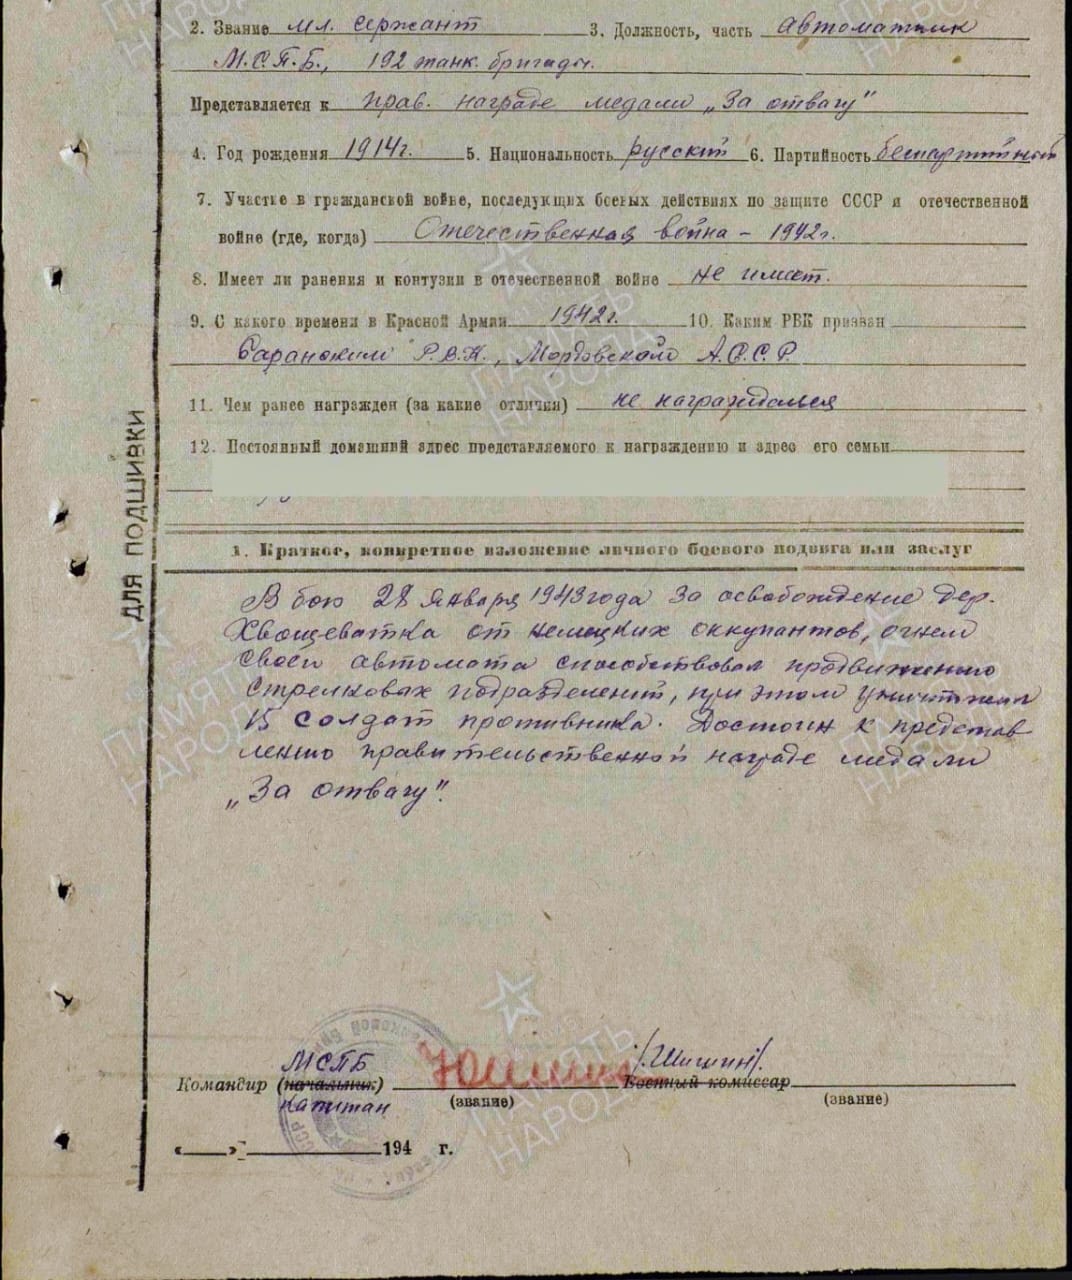 2. Звание мл. сержант 3. Должность, часть автоматчик
М.С.П.Б., 192 танк. бригады.
Представляется к прав. награде медали „За отвагу"
4. Год рождения 1914г. 5. Национальность русский 6. Партийность беспартийный
7. Участие в гражданской войне, последующих боевых действиях по защите СССР и отечественной
войне (где, когда) Отечественная война - 1942г.
8. Имеет ли ранения и контузии в отечественной войне не имеет.
9. С какого времени в Красной Армии 1942г. 10. Каким РВК призван
Саранским Р.В.К., Мордовской А.С.С.Р.
11. Чем ранее награжден (за какие отличия) не награждался
12. Постоянный домашний адрес представляемого к награждению и адрес его семьи
ДЛЯ ПОДШИВКИ
1. Краткое, конкретное изложение личного боевого подвига или заслуг
В бою 28 января 1943 года за освобождение дер.
Хвощеватка от немецких оккупантов, огнем
своей автомата способствовал продвижению
стрелковых подразделений, при этом уничтожил
15 солдат противника. Достоин к представ-
лению правительственной награде медали
„За отвагу".
МСПБ /Шишин/.
Командир (начальник) Военный комиссар
капитан (звание) (звание)
„ " 194 г.
ПАМЯТЬ
НАРОДА